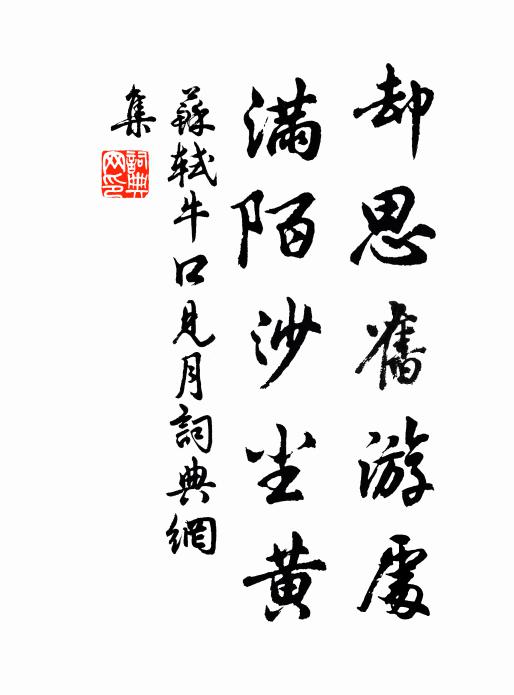 却思舊游處
滿陌沙尘黄
蘇軾牛口見月詞典網
集
詞典
网印